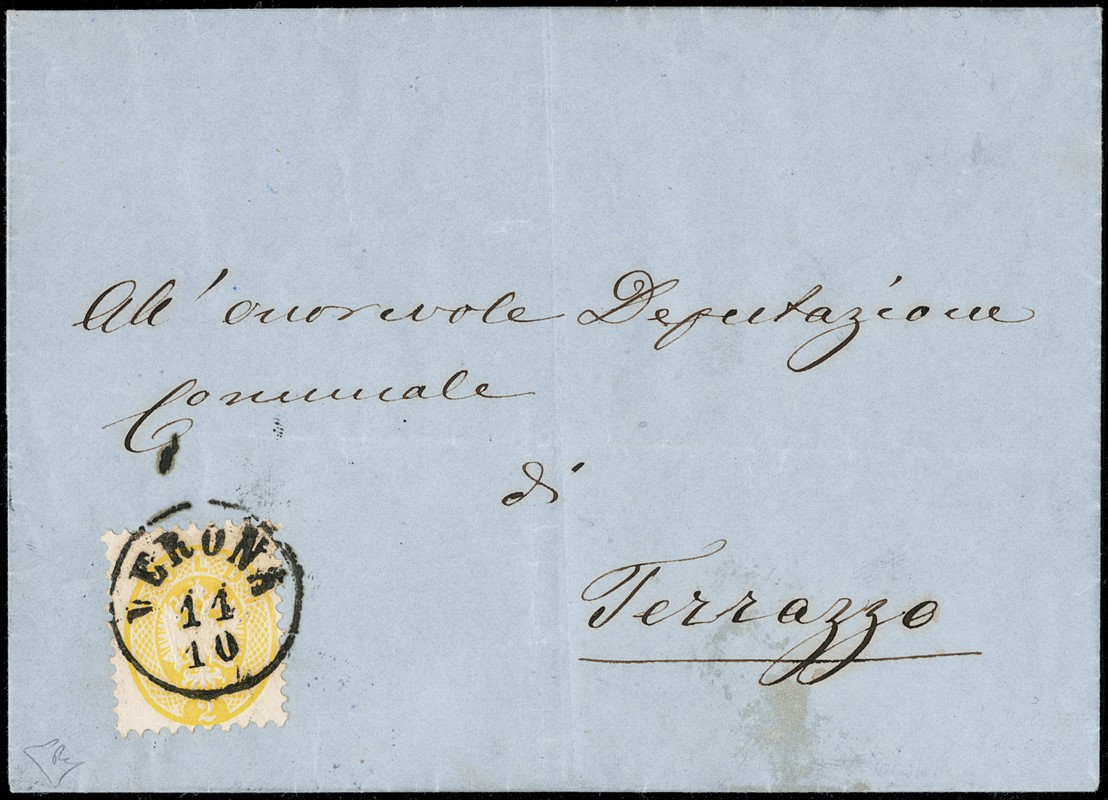 All' onorevole Deputazione
Comunale
di
Terrazzo
VERONA
11
10
2